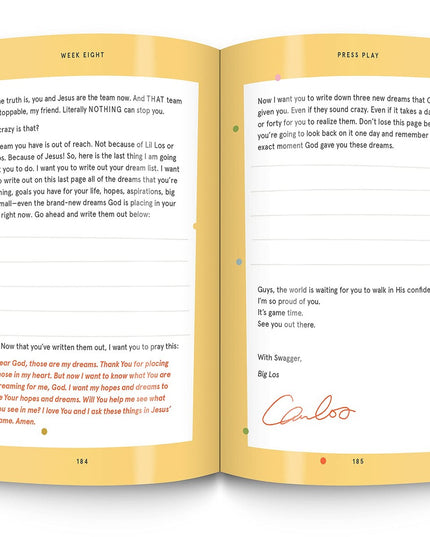 WEEK EIGHT
e truth is, you and Jesus are the team now. And THAT team
stoppable, my friend. Literally NOTHING can stop you.
crazy is that?
ream you have is out of reach. Not because of Lil Los or
os. Because of Jesus! So, here is the last thing I am going
you to do. I want you to write out your dream list. I want
write out on this last page all of the dreams that you're
ning, goals you have for your life, hopes, aspirations, big
mall—even the brand-new dreams God is placing in your
right now. Go ahead and write them out below:
Now that you've written them out, I want you to pray this:
ear God, those are my dreams. Thank You for placing
hose in my heart. But now I want to know what You are
reaming for me, God. I want my hopes and dreams to
e Your hopes and dreams. Will You help me see what
ou see in me? I love You and I ask these things in Jesus'
ame. Amen.
184
PRESS PLAY
Now I want you to write down three new dreams that G
given you. Even if they sound crazy. Even if it takes a da
or forty for you to realize them. Don't lose this page be
you're going to look back on it one day and remember
exact moment God gave you these dreams.
Guys, the world is waiting for you to walk in His confide
I'm so proud of you.
It's game time.
See you out there.
With Swagger,
Big Los
Carlos
185